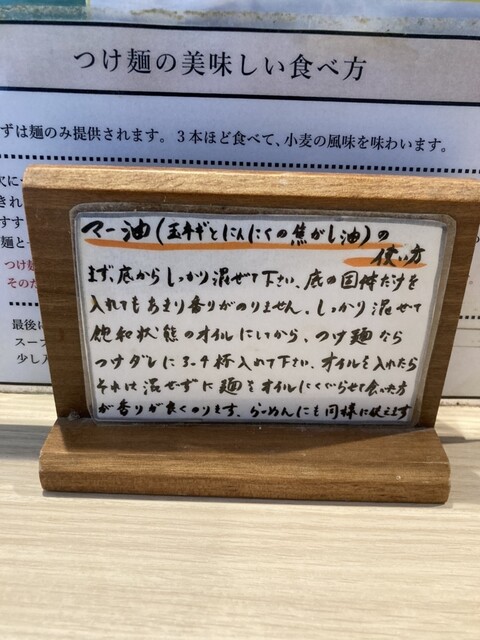 つけ麺の美味しい食べ方
ずは麺のみ提供されます。3本ほど食べて、小麦の風味を味わいます。
マー油(玉ネギとにんにくの焦がし油)の
使い方
まず、底からしっかり混ぜて下さい、底の固体だけを
入れてもあまり香りがのりません。しっかり混ぜて
飽和状態のオイルにしてから、つけ麺なら
つけダレに3~4杯入れて下さい。オイルを入れたら
それは混ぜずに麺をオイルにくぐらせて食べた方
が香りが良くのります。らーめんにも同様に使えます
つけ麺
そのた
最後に
スープ
少し入